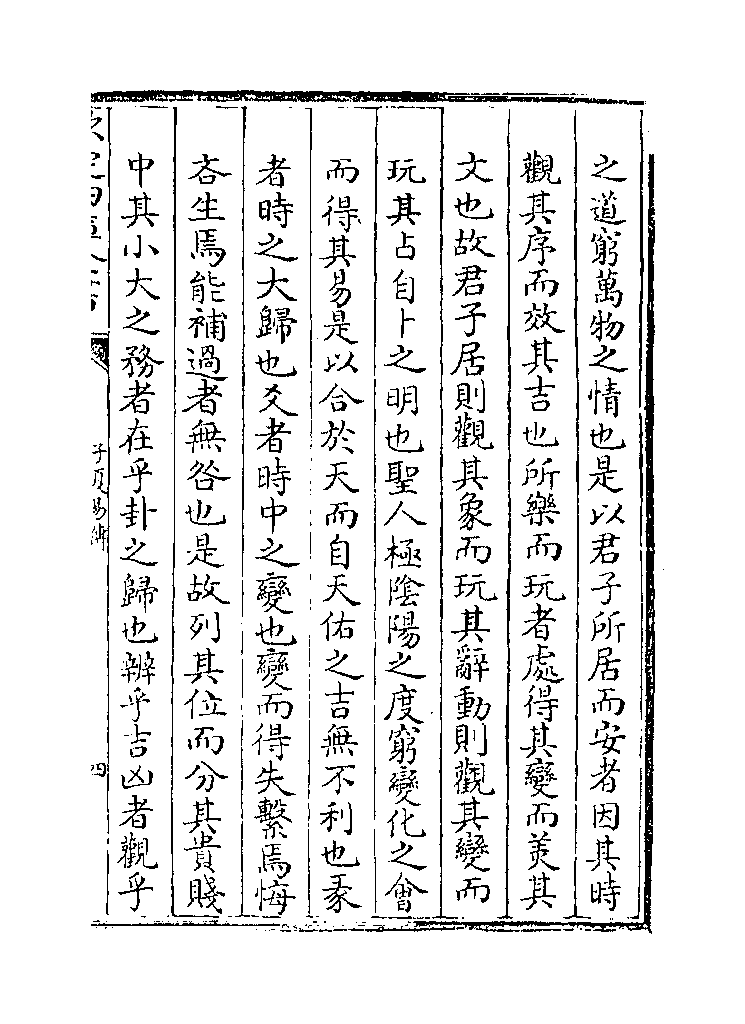 之道窮萬物之情也是以君子所居而安者因其時
觀其序而效其吉也所樂而玩者處得其變而美其
文也故君子居則觀其象而玩其辭動則觀其變而
玩其占自卜之明也聖人極陰陽之度窮變化之會
而得其易是以合於天而自天佑之吉無不利也彖
者時之大歸也爻者時中之變也變而得失繫焉悔
吝生焉能補過者無咎也是故列其位而分其貴賤
中其小大之務者在乎卦之歸也辨乎吉凶者觀乎
子夏易傳
四